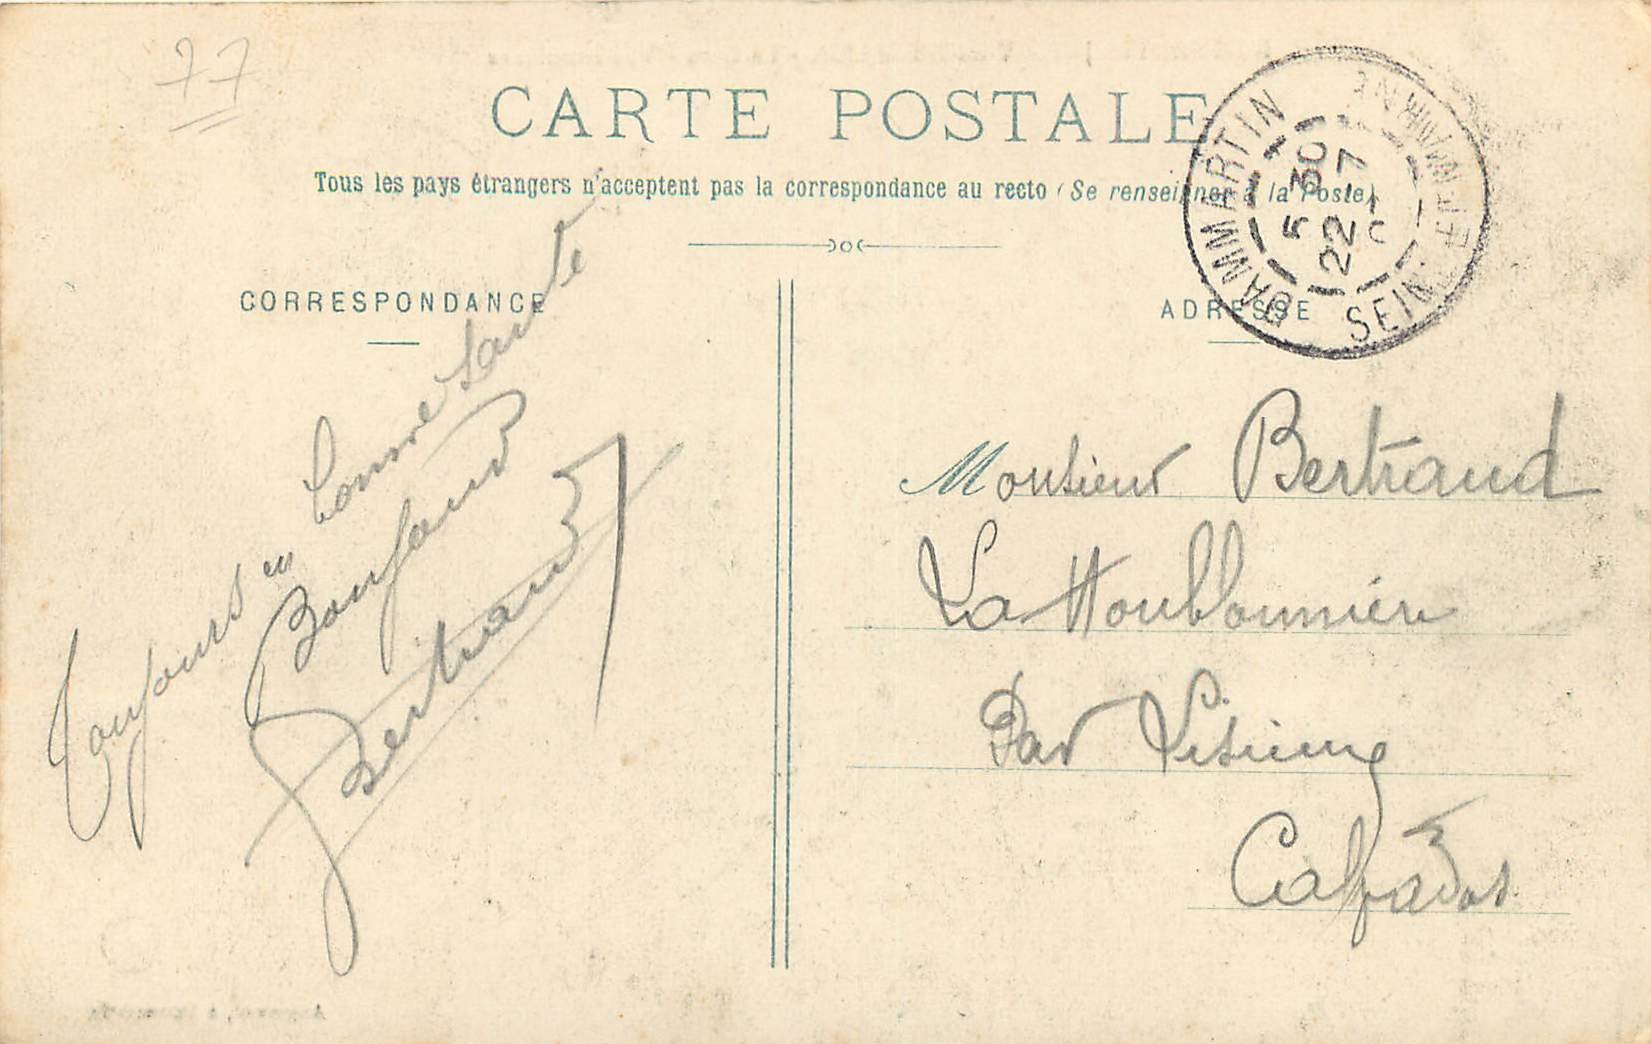 77
CARTE POSTALE
Tous les pays étrangers n'acceptent pas la correspondance au recto (Se renseigner à la Poste)
CORRESPONDANCE
ADRESSE
DAMMARTIN
SEINE ET MARNE
5 30
22 - 7
Toujours en bonne santé
Bertrand
Monsieur Bertrand
La Houblonnière
Par Lisieux
Calvados